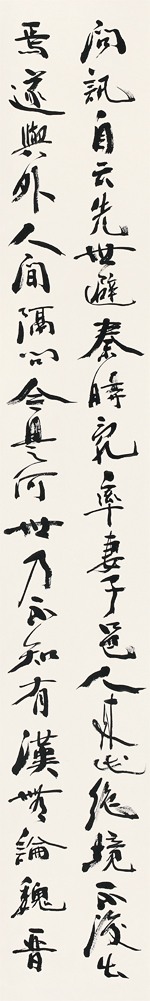 問訊自云先世避秦時亂率妻子邑人來此絕境不復出
焉遂與外人間隔問今是何世乃不知有漢無論魏晉